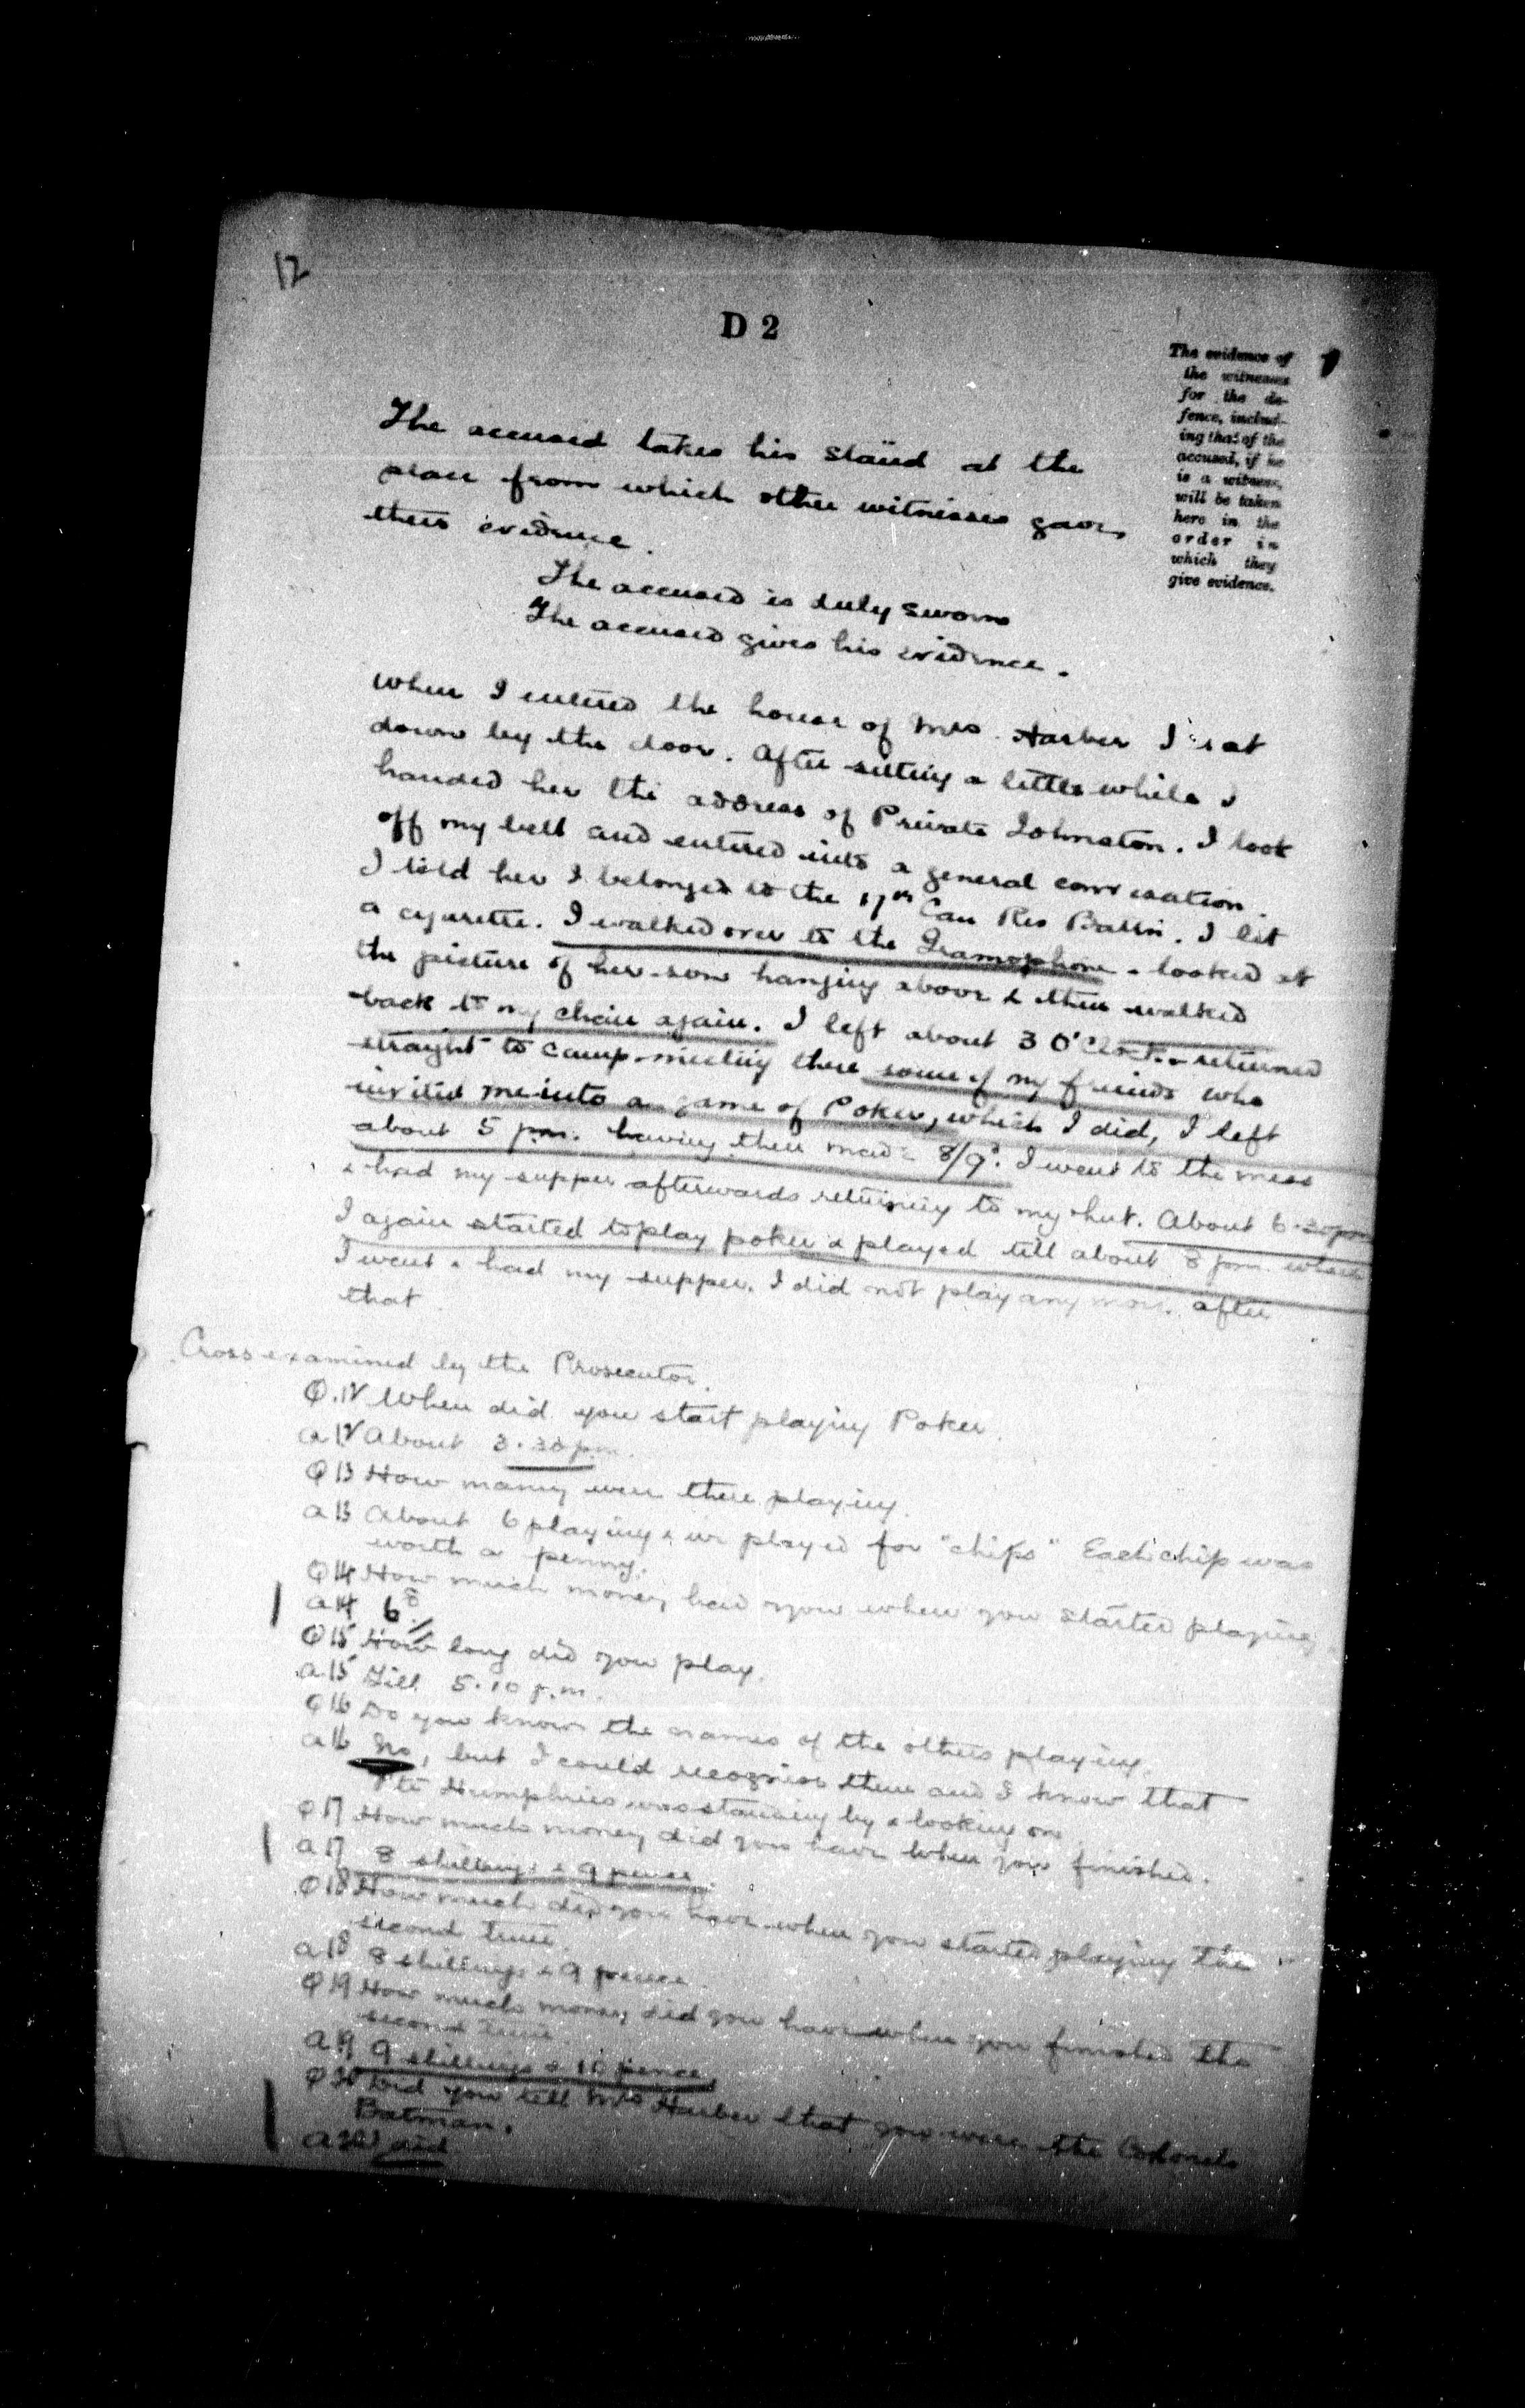 12
D 2
The evidence of
the witnesses
for the de-
fence, includ-
ing that of the
accused, if he
is a witness,
will be taken
here in the
order in
which they
give evidence.
The accused takes his stand at the
place from which other witnesses gave
their evidence.
The accused is duly sworn
The accused gives his evidence.
When I entered the house of Mrs. Harber I sat
down by the door. After sitting a little while I
handed her the address of Private Johnston. I took
off my belt and entered into a general conversation.
I told her I belonged to the 17th Can Res Battn. I lit
a cigarette. I walked over to the Gramophone & looked at
the picture of her son hanging above & then walked
back to my chair again. I left about 3 O'Clock & returned
straight to camp meeting there some of my friends who
invited me into a game of Poker, which I did, I left
about 5 pm. having then made 8/9d. I went to the mess
& had my supper afterwards returning to my hut. About 6.30 pm
I again started to play poker & played till about 8 pm. when
I went & had my supper. I did not play any more after
that
Cross-examined by the Prosecutor.
Q.12 When did you start playing Poker.
A 12 About 3.30 pm.
Q 13 How many were there playing.
A 13 About 6 playing & we played for "chips" Each chip was
worth a penny.
Q 14 How much money had you when you started playing
A 14 6d
Q 15 How long did you play.
A 15 Till 5.10 p.m.
Q 16 Do you know the names of the others playing.
A 16 No, but I could recognise them and I know that
Pte Humphries was standing by & looking on.
Q 17 How much money did you have when you finished.
A 17 8 shillings & 9 pence.
Q 18 How much did you have when you started playing the
second time.
A 18 8 shillings & 9 pence.
Q 19 How much money did you have when you finished the
second time.
A 19 9 shillings & 10 pence.
Q 20 Did you tell Mrs Harber that you were the Colonels
Batman.
A 20 I did